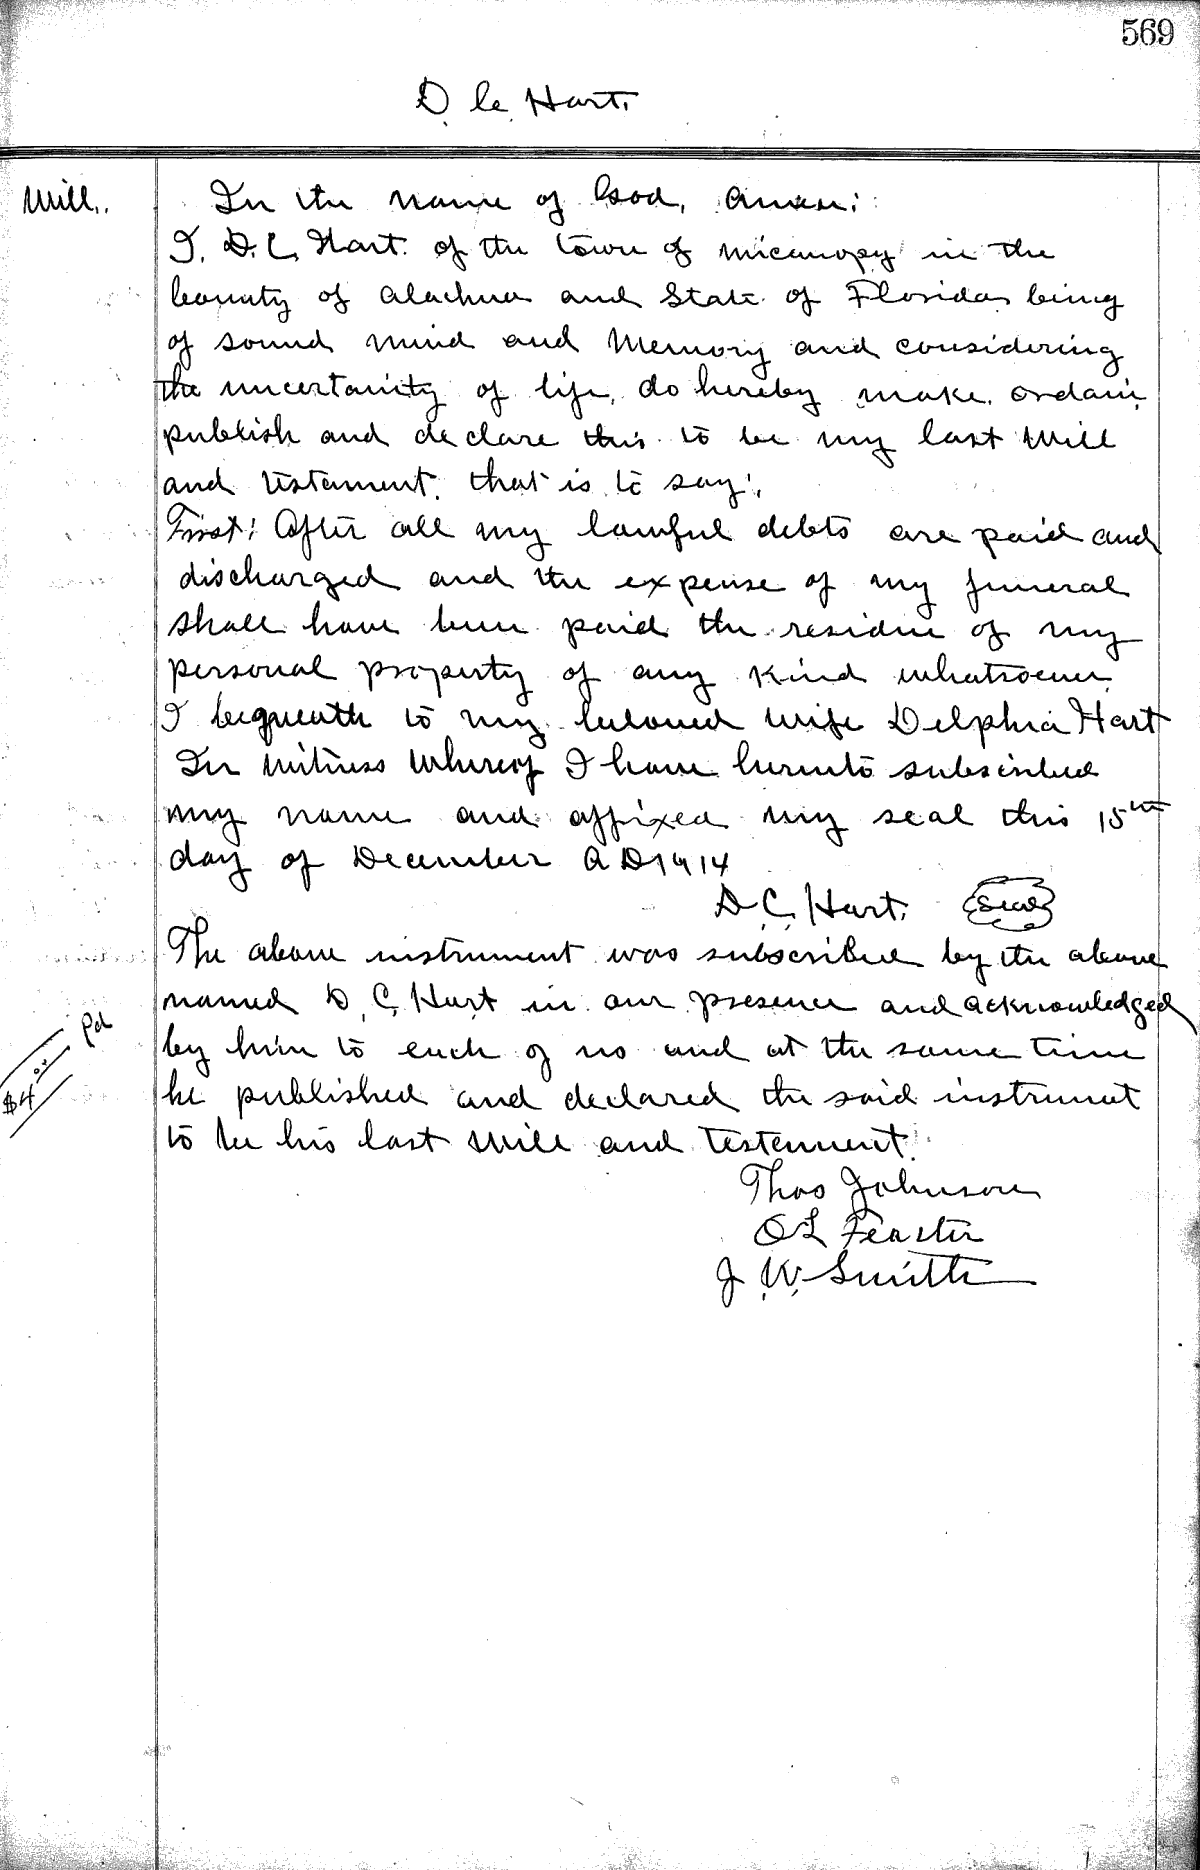 569
D. C. Hart.
Will.
In the name of God, Amen:
I. D. C. Hart. of the town of Micanopy in the
County of Alachua and State of Florida being
of sound mind and Memory and considering
the uncertanity of life, do hereby make, ordain,
publish and declare this to be my last Will
and testament. that is to say:
First: After all my lawful debts are paid and
discharged and the expense of my funeral
shall have been paid the residue of my
personal property of any kind whatsoever
I bequeath to my beloved wife Delphia Hart
In Witness Whereof I have hereunto subscribed
my name and affixed my seal this 15th
day of December A D 1914
D. C. Hart. Seal
The above instrument was subscribed by the above
named D. C. Hart in our presence and acknowledged
by him to each of us and at the same time
he published and declared the said instrument
to be his last Will and testement.
$4.00 Pd
Thos Johnson
O L Feaster
J. W. Smith